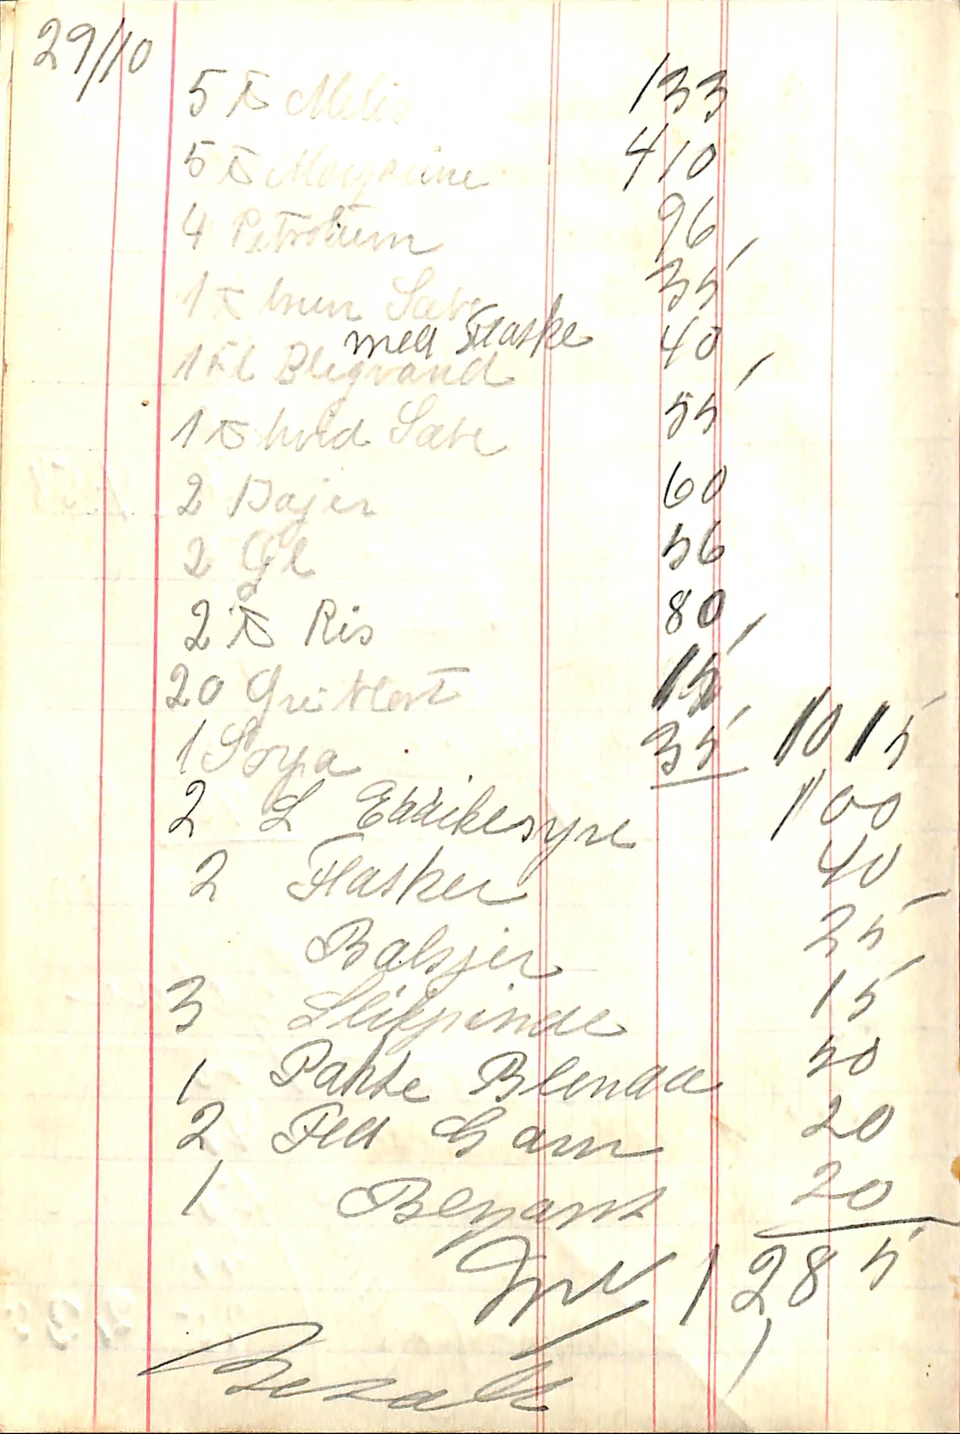 29/10
5 ℔ Melis 133
5 ℔ Margarine 410
4 Petroleum 96
1 ℔ brun Sæbe 35
med Flaske
1 Fl Blegvand 40
1 ℔ hvid Sæbe 55
2 Bajer 60
2 Gl 56
2 ℔ Ris 80
20 15
1 Soya 35 1015
2 L Eddikesyre 100
2 Flasker 40
25
3 15
1 Pakke Blondaa 50
2 Fed Garn 20
1 Blyant 20
1285
Betalt